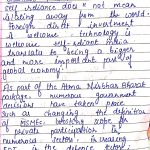 Self reliance does not mean
being away from the world.
Foreign direct investment
is welcome, technology is
welcome, self-reliant India
translate as being a bigger
and more important part of
global economy.
As part of the Atma Nirbhar Bharat
package, numerous government
decisions have taken place
such as changing the definition
of MSMEs, boosting scope for
private participation in
numerous sectors, increasing
FDI in the defence sector;